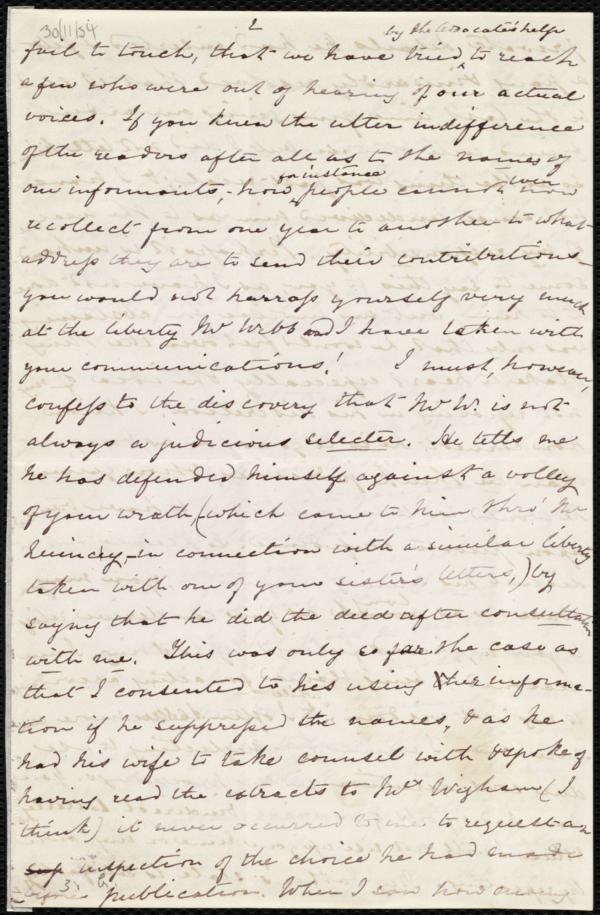 30/11/54
2
by the Advocate's help
fail to touch, that we have tried ^ to reach
a few who were out of hearing of our actual
voices. If you knew the utter indifference
of the readers after all as to the names of
our informants, - how ^ for instance people cannot even now
recollect from one year to another to what
address they are to send their contributions -
you would not harrass yourself very much
at the liberty Mr Webb and I have taken with
your communications! I must, however,
confess to the discovery that Mr W. is not
always a judicious selecter. He tells me
he has defended himself against a volley
of your wrath, (which came to him thro' Mr
Quincy, in connection with a similar liberty
taken with one of your sister's letters,) by
saying that he did the deed after consultation
with me. This was only so far the case as
that I consented to his using the informa-
tion if he suppressed the names, & as he
had his wife to take counsel with & spoke of
having read the extracts to Mrs Wigham (I
think) it never occurred to me to request an
sup inspection of the choice he had made
3
publication. When I saw how